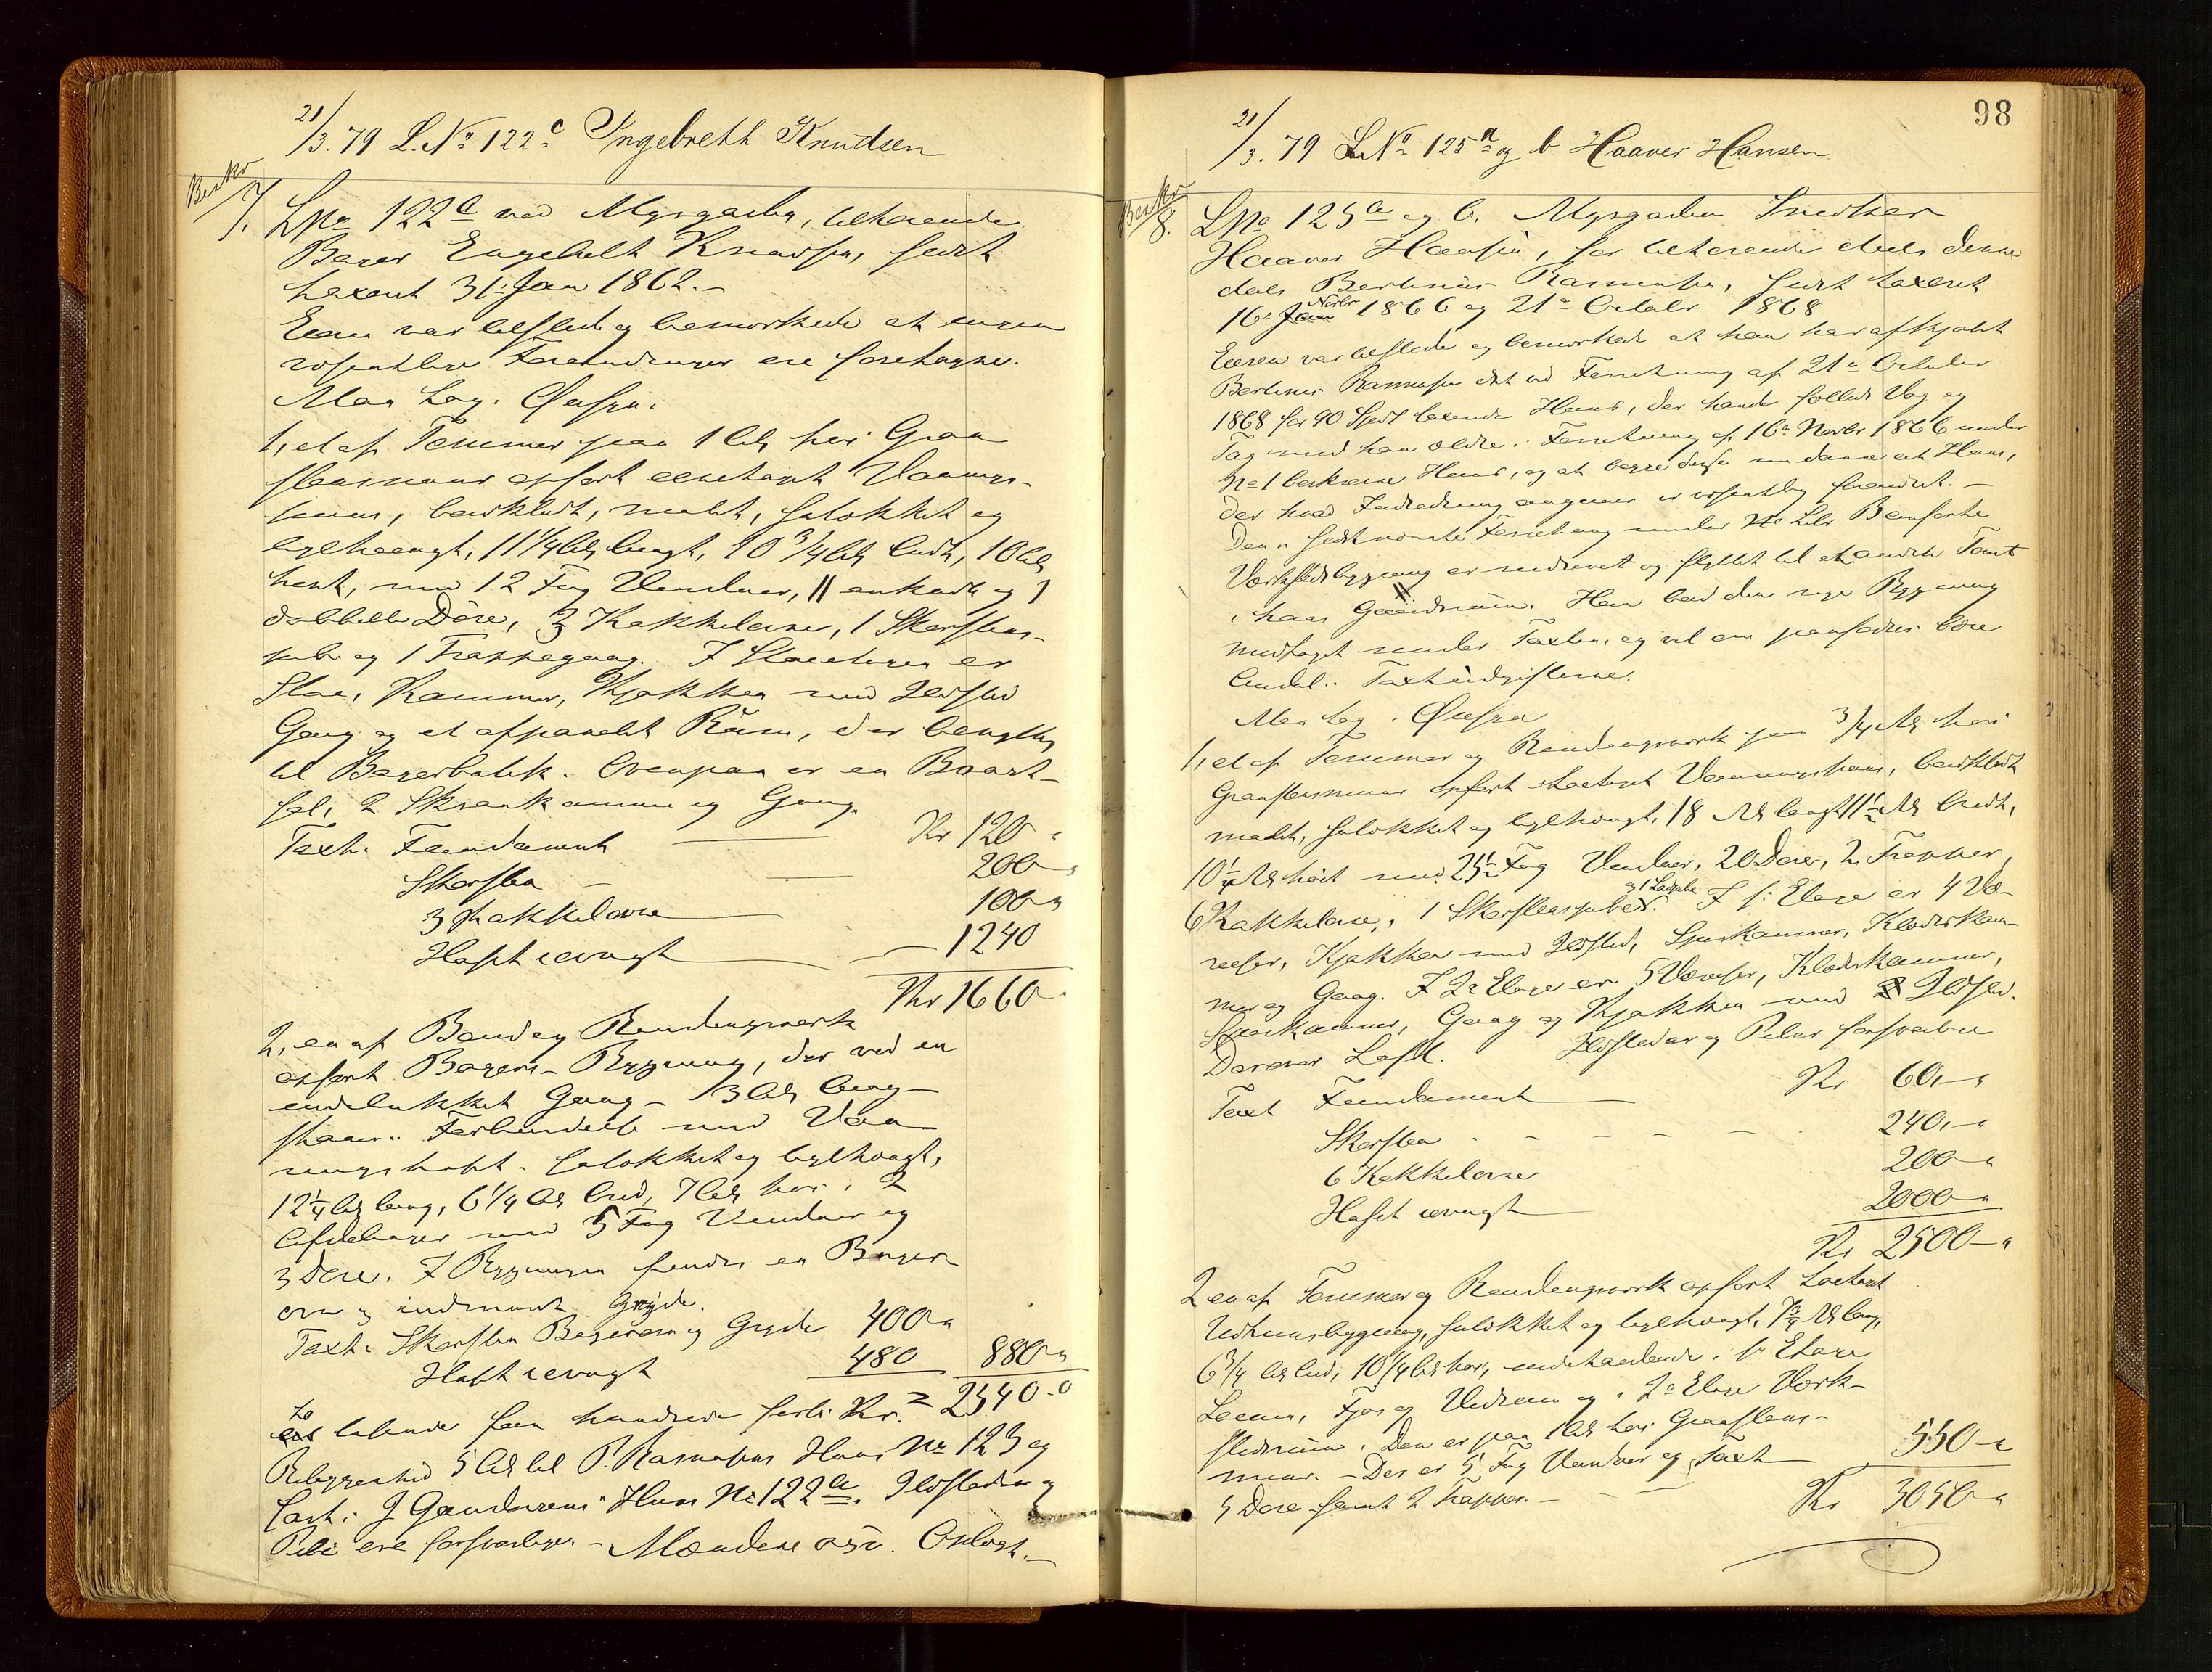 21/3. 79 L.No 122c Ingebreth Knudsen
Beskr
7. LNo 122c ved Myrgaden, tilhørende
Bager Engebret Knudsen, sidst
taxeret 31. Jan 1862.-
Eieren var tilstede og bemærkede at ingen
væsentlige Forandringer ere foretagne.
Man tog i Øiesyn:
1, et af Tømmer paa 1 Al. høi Graa
steensmuur opført eenetages Vaanings-
huus, bordklædt, malt, gulvlagt og
teglhængt, 11 1/4 Al. langt, 10 3/4 Al. bredt, 10 Al.
høit, med 12 Fag Vinduer, 11 enkelte og 1
dobbelte Døre, 3 Kakkelovne, 1 Skorsteens-
pibe og 1 Trappegang. I Stueetagen er
Stue, Kammer, Kjøkken med Ildsted
Gang og et afpanelt Rum, der benyttes
til Bagerbutik. Ovenpaa er en
Sal, 2 Skraakammere og Gang.
Taxt: Fundament Kr 120 "
Skorsten - 200 "
3 Kakkelovne 100 "
Huset iøvrigt - 1240
Kr 1660 "
2, en af Bord og Bindingsværk
opført Bageri-Bygning, der ved en
indelukket Gang - 3 Al. lang -
staar i Forbindelse med Vaa-
ningshuset. gulvlagt og teglhængt,
12 1/4 Al. lang, 6 1/4 Al. bred, 7 Al. høi i 2
Afdelinger med 5 Fag Vinduer og
3 Døre. I Bygningen findes en Bager-
ovn og indmuret Gryde.
Taxt: Skorsten Bagerovn og Gryde 400 "
Huset iøvrigt 480 880 "
to tusinde fem hundrede forti Kr. = 2540 - 0
Bebyggenhed 5 Al. til P. Rasmusens Huus No 123 og
J Gundersens Huus No 122a. Ildstederne og
Pibe ere forsvarlige. - Mændene osv. Oplæst.-
98
21/3. 79 L.No 125a og b Haaver Hansen
Beskr
8. LNo 125a og b. Myrgaden Snedker
Haaver Hansen, før tilhørende deels denne
deels Bertinius Rasmusen, sidst taxeret
16. Novbr 1866 og 21. Octobr 1868
Eieren var tilstede og bemærkede at han har afkjøbt
Bertinius Rasmusen det ved Forretning af 21. October
1868 for 90 Spdl taxerede Huus, der havde fælleds Væg og
Tag med hans ældre i Forretning af 16. Novbr 1866 under
No 1 beskrevne Huus, og at begge disse nu danne eet Huus,
der hvad Indredning angaaer er væsentlig forandret. -
Den i sidstnævnte Forretning under Litr B anførte
Værkstedsbygning er nedrevet og flyttet til et andet Tomt
i hans Gaardsrum. Han bad den nye Bygning
medtaget under Taxten, og vil om paafordres bære
Andel i Taxtudgifterne.
Man tog i Øiesyn
1, et af Tømmer og Bindingsværk paa 3/4 Al. høi
Graasteensmuur opført toetages Vaaningshuus, bordklædt
malt, gulvlagt og teglhængt, 18 Al. langt 11 1/2 Al. bredt,
10 1/4 Al. høit med 25 1/2 Fag Vinduer, 20 Døre, 2 Trapper,
6 Kakkelovne, 1 Skorsteenspibe. I 1. Etage er 4 Væ-
relser, Kjøkken med Ildsted, Spiskammer, Klædeskam-
mer og Gang. I 2. Etage er 5 Værelser, Klædekammer,
Spiskammer, Gang og Kjøkken med Ildsted.
Derover Loft. Ildsteder og Piber forsvarlige
Taxt Fundament Kr 60, - "
Skorsten - - - - 240, - "
6 Kakkelovne 200 - "
Huset iøvrigt 2000 - "
Kr 2500 - "
2 en af Tømmer og Bindingsværk opført toetages
Udhuusbygning, gulvlagt og teglhængt, 7 3/4 Al. lang,
6 3/4 Al. bred, 10 1/4 Al. høi, indeholdende i 1. Etage
Fjøs og Vedrum og i 2. Etage Værk-
stedsrum. Den er paa 1 Al. høi Graasteens-
muur. - Der er 5 Fag Vinduer og Taxt 550 - "
5 Døre samt 2 Trapper. - Kr 3050 - "